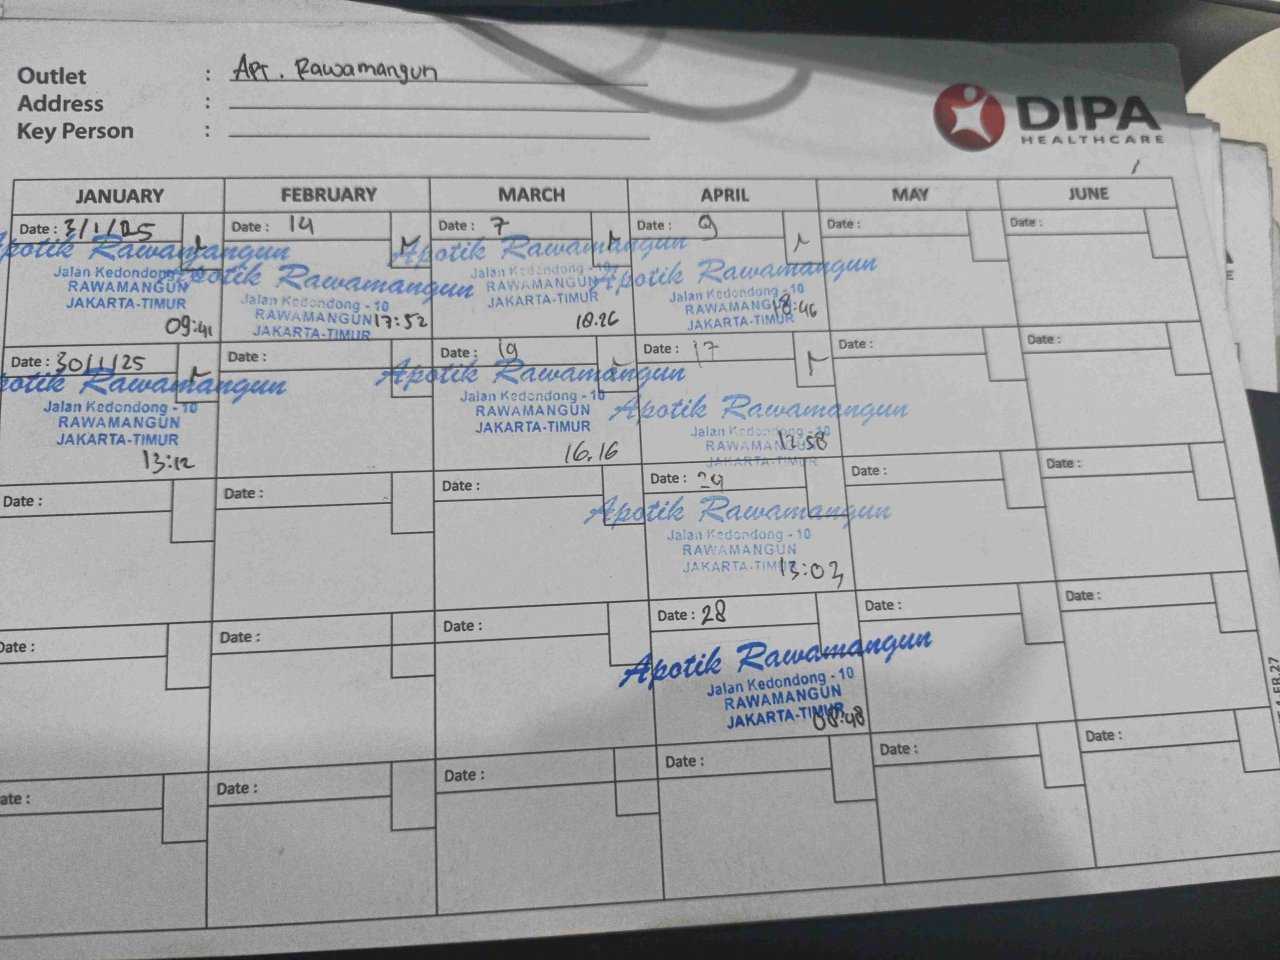 Outlet : Apt. Rawamangun
Address :
Key Person :
DIPA
HEALTHCARE
JANUARY FEBRUARY MARCH APRIL MAY JUNE
Date : 3/1/25 Date : 14 Date : 7 Date : 9 Date : Date :
Apotik Rawamangun
Jalan Kedondong - 10
RAWAMANGUN
JAKARTA-TIMUR
09:41
Apotik Rawamangun
Jalan Kedondong - 10
RAWAMANGUN
JAKARTA-TIMUR
17:52
Apotik Rawamangun
Jalan Kedondong - 10
RAWAMANGUN
JAKARTA-TIMUR
18.26
Apotik Rawamangun
Jalan Kedondong - 10
RAWAMANGUN
JAKARTA-TIMUR
18:46
Date : 30/1/25 Date : Date : 19 Date : 17 Date : Date :
Apotik Rawamangun
Jalan Kedondong - 10
RAWAMANGUN
JAKARTA-TIMUR
13:12
Apotik Rawamangun
Jalan Kedondong - 10
RAWAMANGUN
JAKARTA-TIMUR
16.16
Apotik Rawamangun
Jalan Kedondong - 10
RAWAMANGUN
JAKARTA-TIMUR
Date : Date : Date : Date : Date : Date :
Apotik Rawamangun
Jalan Kedondong - 10
RAWAMANGUN
JAKARTA-TIMUR
13:03
Date : Date : Date : Date : 28 Date : Date :
Apotik Rawamangun
Jalan Kedondong - 10
RAWAMANGUN
JAKARTA-TIMUR
08:48
Date : Date : Date : Date : Date : Date :